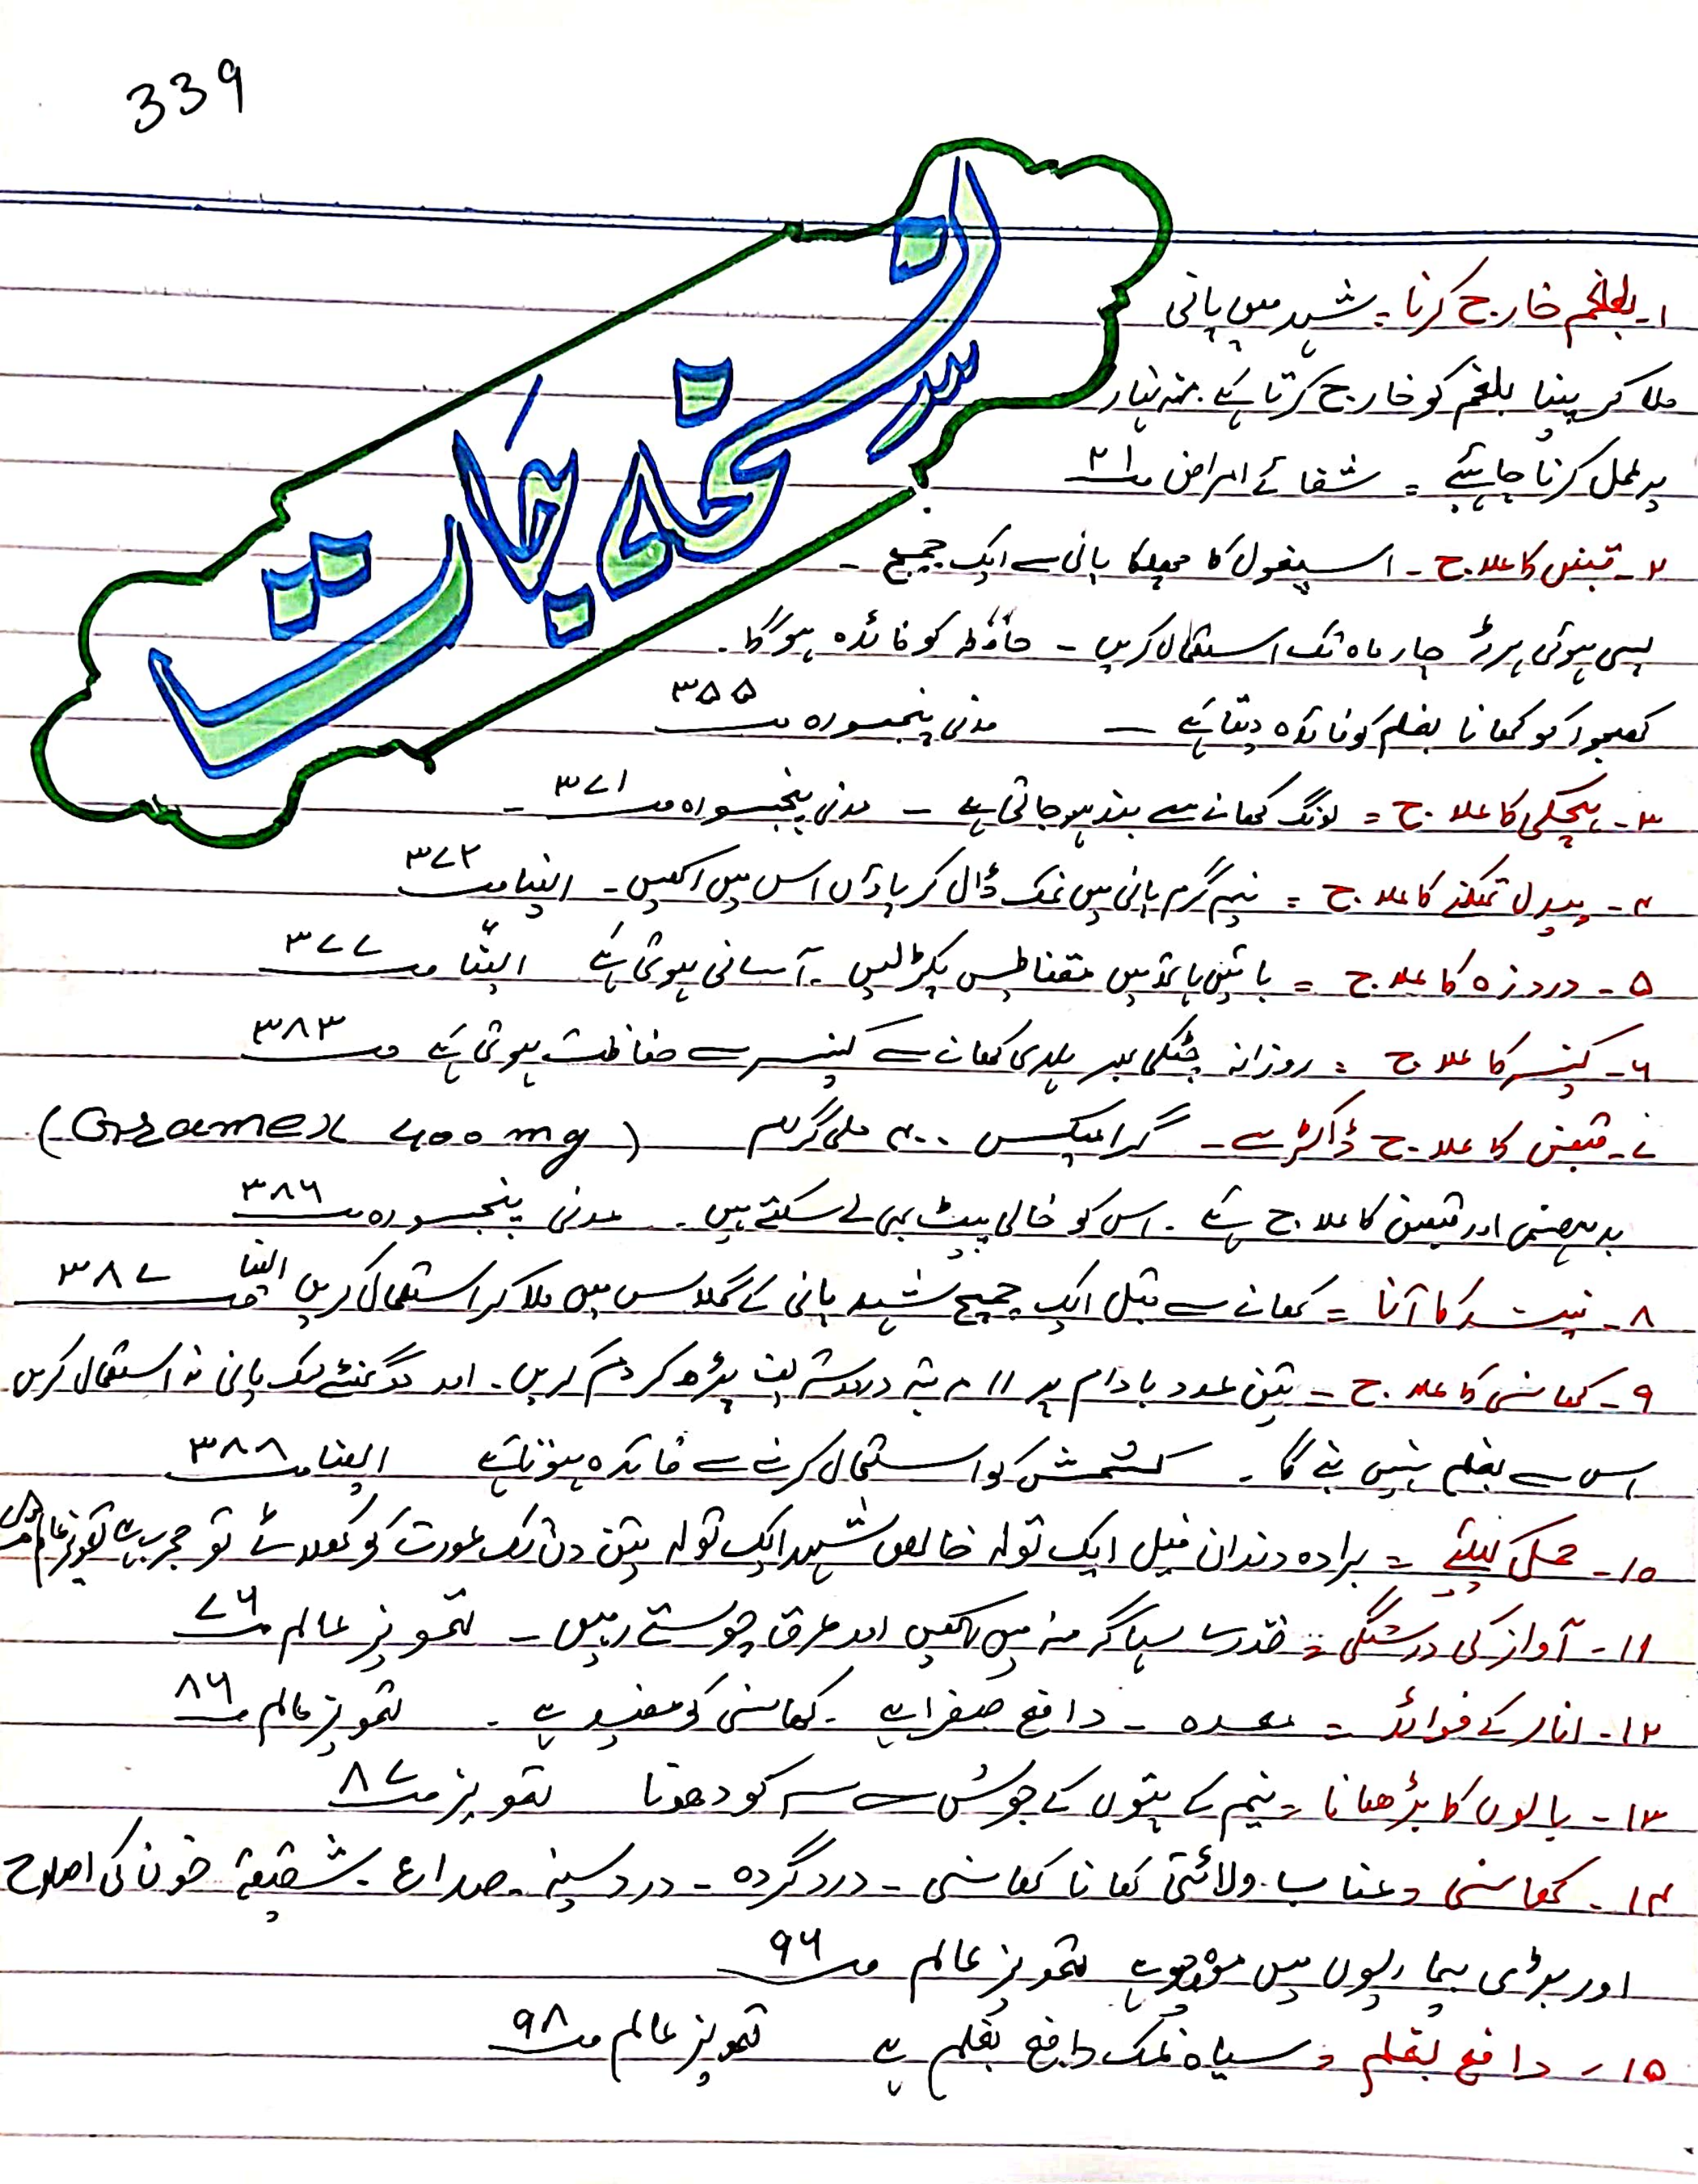 339
نسخہ جات
۱۔ بلغم خارج کرنا ۔ شہد میں پانی
ملا کر پینا بلغم کو خارج کرتا ہے
پر عمل کرنا چاہئیے = شفائے امراض صـ ۲۱
۲۔ قبض کا علاج ۔ اسپغول کا چھلکا پانی سے ایک چمچ ۔
پسی ہوئی ہرڑ چار ماہ تک استعمال کریں ۔ حافظہ کو فائدہ ہوگا ۔
کھجور کو کھانا بلغم کو فائدہ دیتا ہے ۔ مدنی پنجسورہ صـ ۳۵۵
۳۔ ہچکی کا علاج = لونگ کھانے سے بند ہو جاتی ہے ۔ مدنی پنجسورہ صـ ۳۷۱ ۔
۴۔ پیدل تھکنے کا علاج = نیم گرم پانی میں نمک ڈال کر پاؤں اس میں رکھیں ۔ ایضا صـ ۳۷۲
۵۔ درد زہ کا علاج = بائیں ہاتھ میں مقناطیس پکڑ لیں ۔ آسانی ہوتی ہے ایضا صـ ۳۷۷
۶۔ کینسر کا علاج = روزانہ چٹکی بھر ہلدی کھانے سے کینسر سے حفاظت ہوتی ہے صـ ۳۸۳
۷۔ قبض کا علاج ڈاکٹر سے ۔ گرامیکس ۴۰۰ ملی گرام (Gramex 400 mg)
بدہضمی اور قبض کا علاج ہے ۔ اس کو خالی پیٹ بھی لے سکتے ہیں ۔ مدنی پنجسورہ صـ ۳۸۶
۸۔ نیند کا آنا = کھانے سے قبل ایک چمچ شہد پانی کے گلاس میں ملا کر استعمال کریں ایضا صـ ۳۸۷
۹۔ کھانسی کا علاج ۔ تین عدد بادام پر ۱۱ مرتبہ درود شریف پڑھ کر دم کریں ۔ اور دو گھنٹے تک پانی نہ استعمال کریں
اس سے بلغم نہیں بنے گا ۔ کشمش کو استعمال کرنے سے فائدہ ہوتا ہے ایضا صـ ۳۸۸
۱۰۔ حمل کیلئے = برادہ دندان فیل ایک تولہ خالص شہد ایک تولہ تین دن تک عورت کو کھلائے تو مجرب ہے
۱۱۔ آواز کی درستگی = قدرے سہاگہ منہ میں رکھیں اور عرق چوستے رہیں ۔ تجویز عالم صـ ۷۶
۱۲۔ انار کے فوائد = معدہ ۔ دافع صفرا ہے ۔ کھانسی کو مفید ہے ۔ تجویز عالم صـ ۸۶
۱۳۔ بالوں کا بڑھانا = نیم کے پتوں کے جوش سے سر کو دھونا تجویز صـ ۸۷
۱۴۔ کھانسی = عناب ولائتی کھانا کھانسی ۔ درد گردہ ۔ درد سینہ ۔ صداع ۔ شقیقہ خون کی اصلاح
اور بڑی بیماریوں میں تجویز عالم صـ ۹۶
۱۵۔ دافع بلغم = سیاہ نمک دافع بلغم ہے تجویز عالم صـ ۹۸